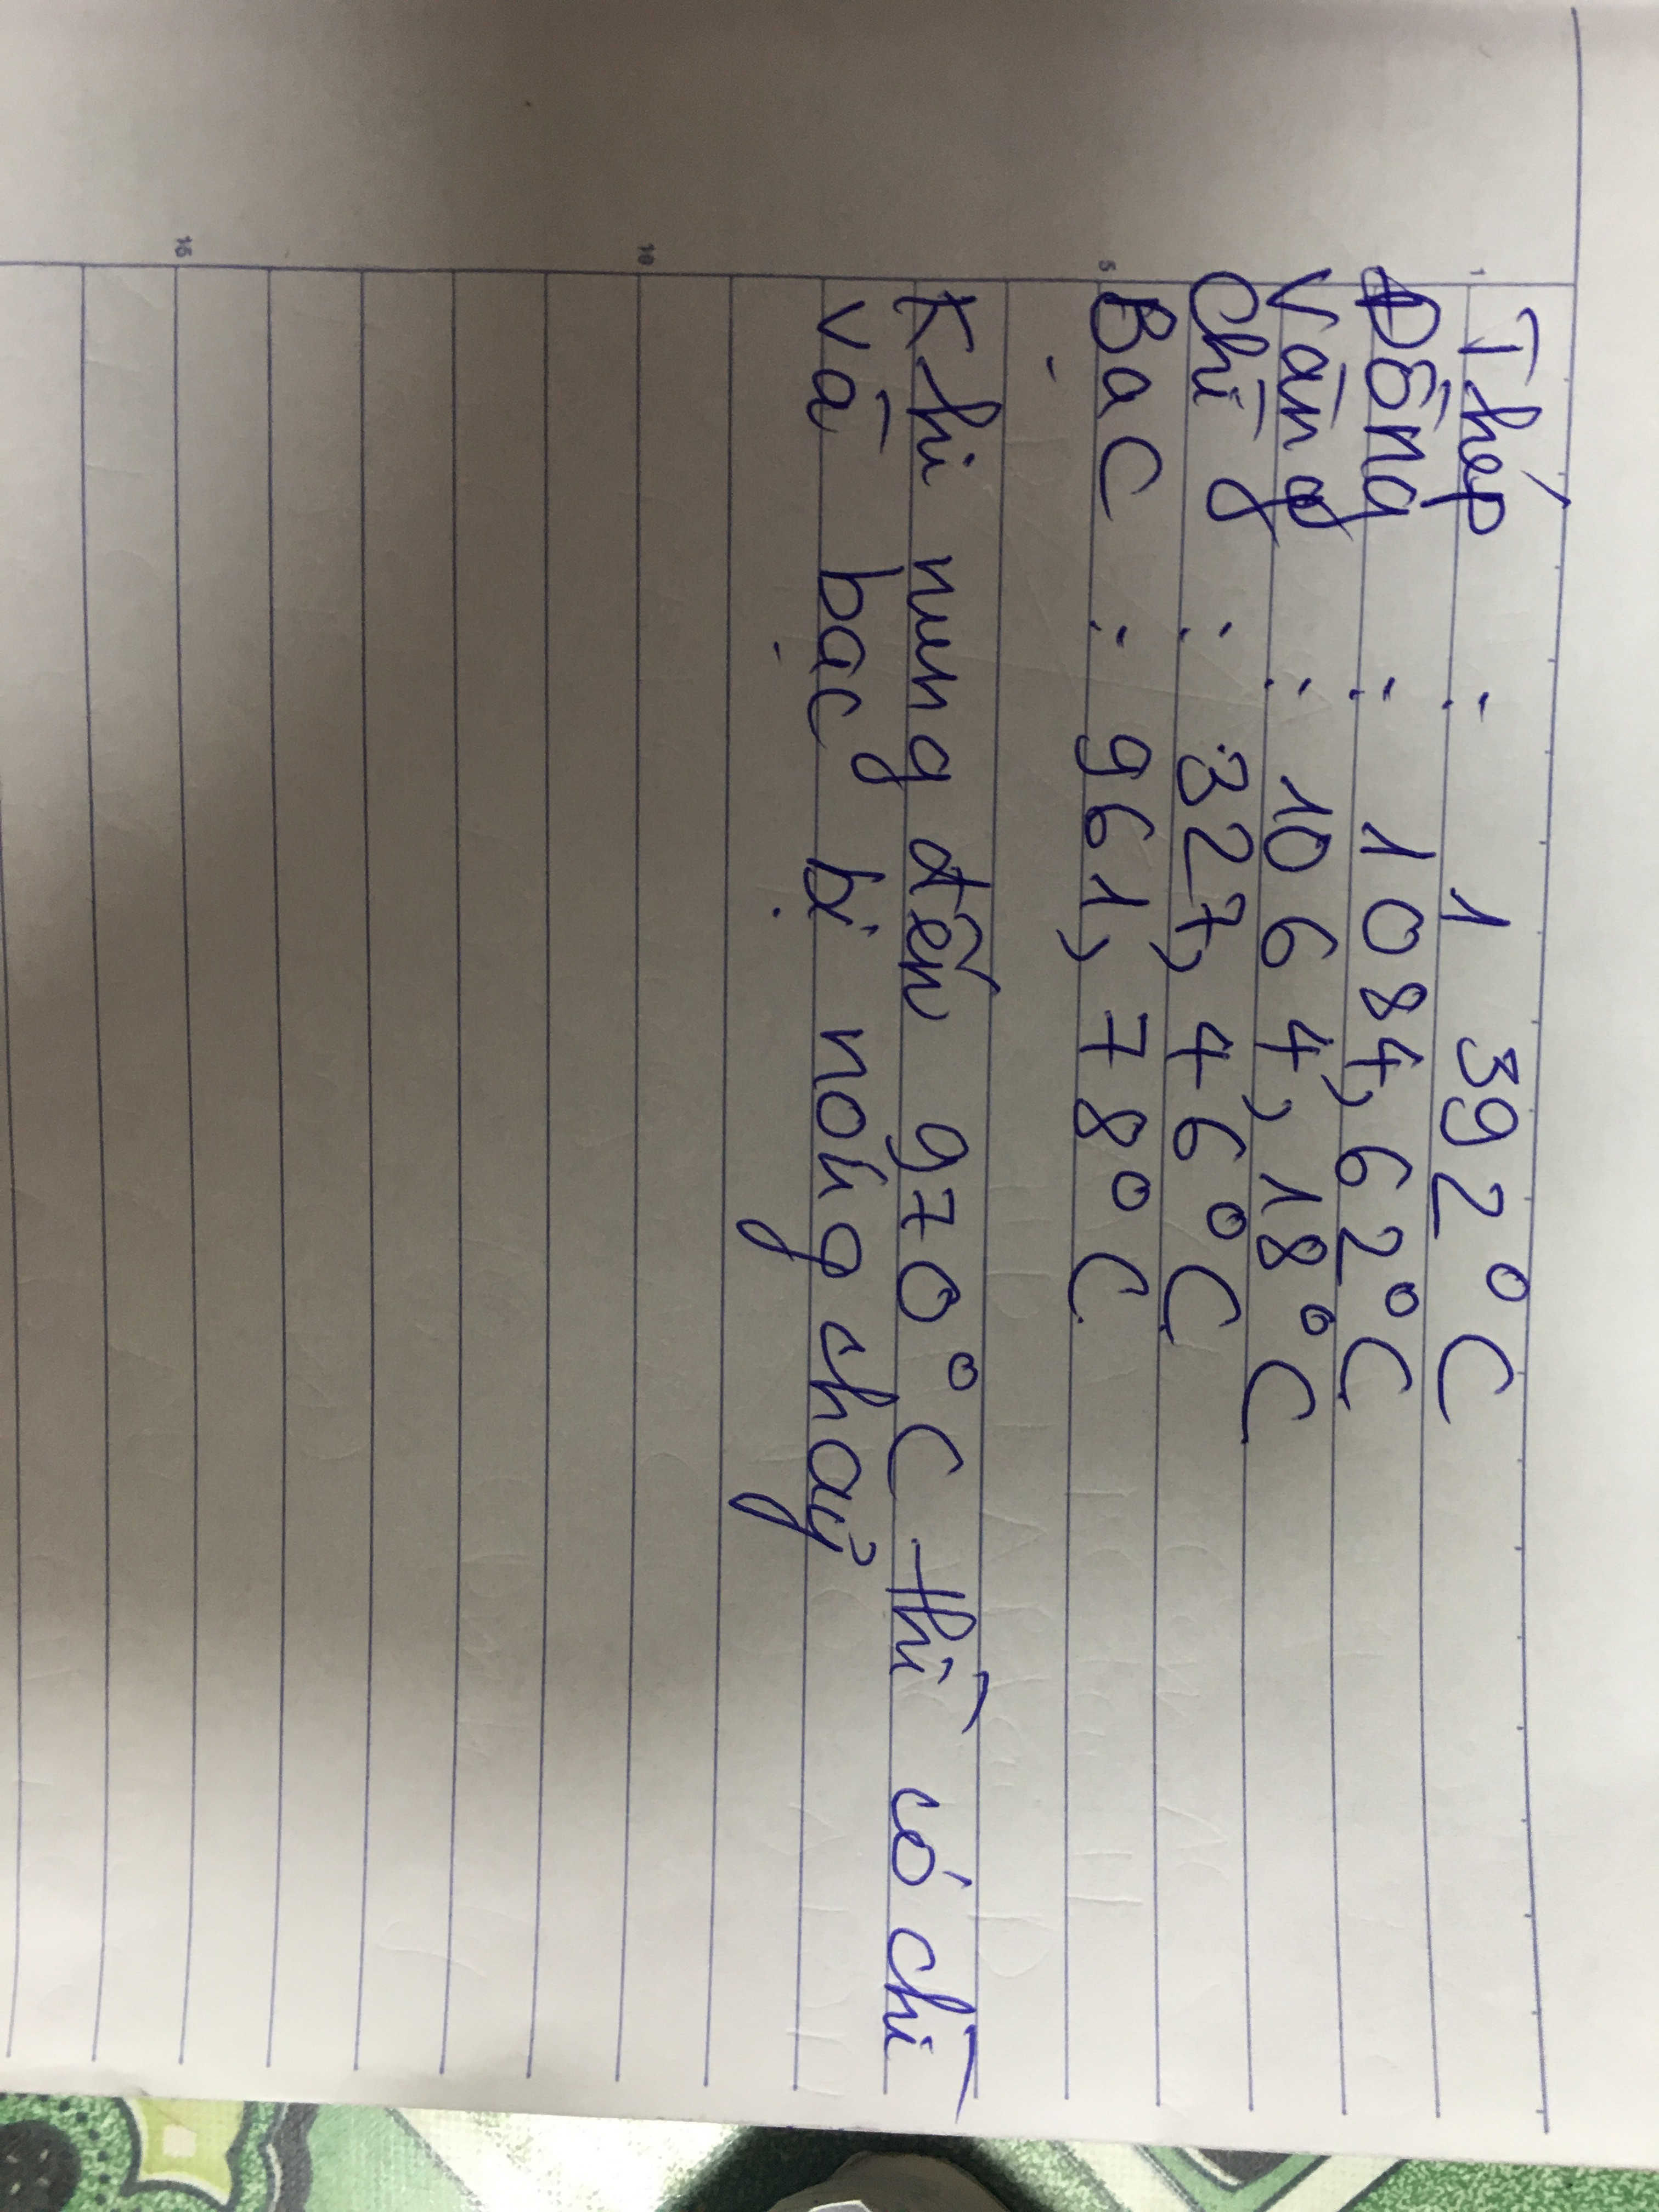 Thép : 1 392°C
Đồng : 1084,62°C
Vàng : 1064,18°C
Chì : 327,46°C
Bạc : 961,78°C
Khi nung đến 970°C thì có chì
và bạc bị nóng chảy
1
5
10
15